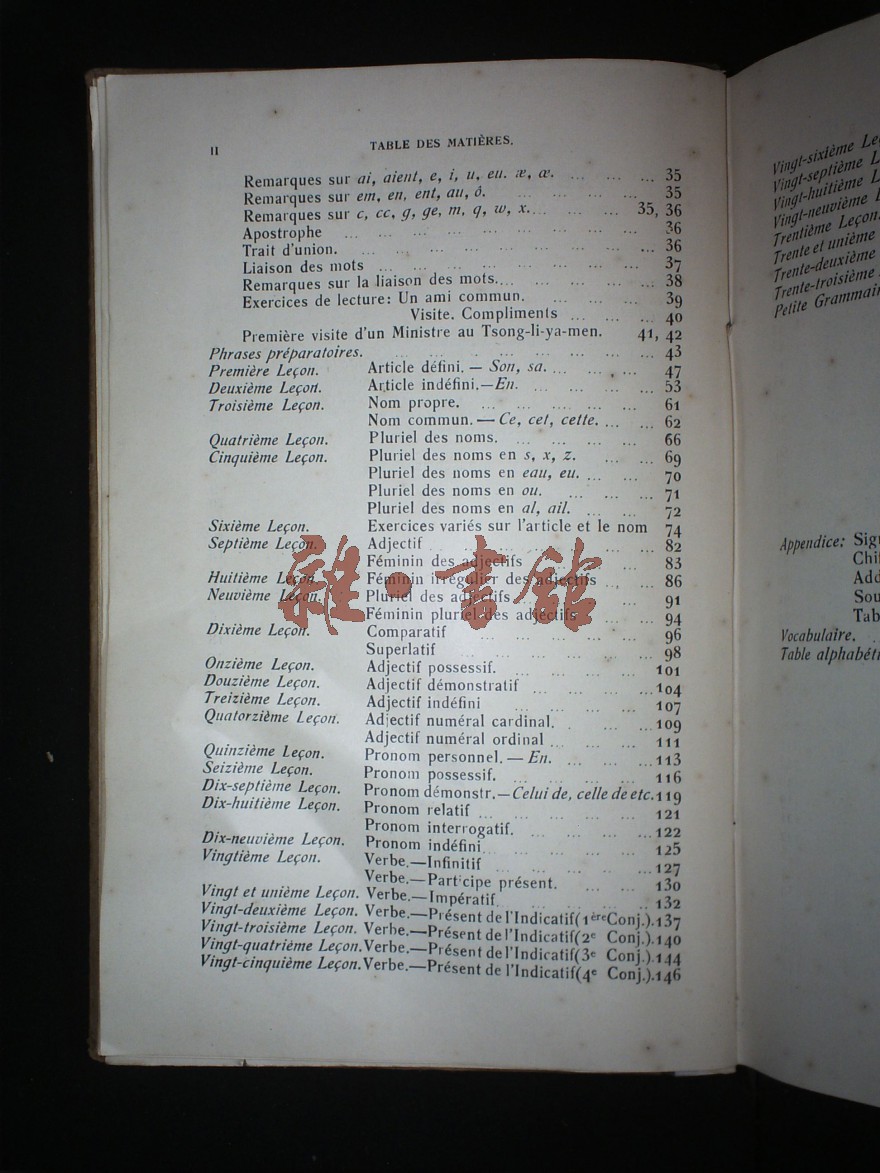 II
TABLE DES MATIÈRES.
Remarques sur ai, aient, e, i, u, eu. æ, œ. ... ... ... 35
Remarques sur em, en, ent, au, ô. ... ... ... 35
Remarques sur c, cc, g, ge, m, q, w, x.... ... ... 35, 36
Apostrophe ... ... ... ... ... ... ... ... 36
Trait d'union. ... ... ... ... ... ... ... 36
Liaison des mots ... ... ... ... ... ... ... 37
Remarques sur la liaison des mots.... ... ... ... 38
Exercices de lecture: Un ami commun. ... ... ... 39
Visite. Compliments ... ... ... 40
Première visite d'un Ministre au Tsong-li-ya-men. 41, 42
Phrases préparatoires. ... ... ... ... ... ... ... 43
Première Leçon. Article défini. — Son, sa. ... ... ... 47
Deuxième Leçon. Article indéfini.—En. ... ... ... ... 53
Troisième Leçon. Nom propre. ... ... ... ... ... 61
Nom commun. — Ce, cet, cette. ... ... 62
Quatrième Leçon. Pluriel des noms. ... ... ... ... 66
Cinquième Leçon. Pluriel des noms en s, x, z. ... ... 69
Pluriel des noms en eau, eu. ... ... 70
Pluriel des noms en ou. ... ... ... 71
Pluriel des noms en al, ail. ... ... 72
Sixième Leçon. Exercices variés sur l'article et le nom 74
Septième Leçon. Adjectif ... ... ... ... ... ... 82
Féminin des adjectifs ... ... ... 83
Huitième Leçon. Féminin irrégulier des adjectifs ... ... 86
Neuvième Leçon. Pluriel des adjectifs ... ... ... 91
Féminin pluriel des adjectifs ... ... 94
Dixième Leçon. Comparatif ... ... ... ... ... 96
Superlatif ... ... ... ... ... 98
Onzième Leçon. Adjectif possessif. ... ... ... ... 101
Douzième Leçon. Adjectif démonstratif ... ... ... ...104
Treizième Leçon. Adjectif indéfini ... ... ... ... 107
Quatorzième Leçon. Adjectif numéral cardinal. ... ... ...109
Adjectif numéral ordinal ... ... ... 111
Quinzième Leçon. Pronom personnel. — En. ... ... ...113
Seizième Leçon. Pronom possessif. ... ... ... ... 116
Dix-septième Leçon. Pronom démonstr.—Celui de, celle de etc.119
Dix-huitième Leçon. Pronom relatif ... ... ... ... 121
Pronom interrogatif. ... ... ... ...122
Dix-neuvième Leçon. Pronom indéfini... ... ... ... 125
Vingtième Leçon. Verbe.—Infinitif ... ... ... ...127
Verbe.—Participe présent. ... ... ... 130
Vingt et unième Leçon. Verbe.—Impératif. ... ... ... 132
Vingt-deuxième Leçon. Verbe.—Présent de l'Indicatif(1ère Conj.).137
Vingt-troisième Leçon. Verbe.—Présent de l'Indicatif(2e Conj.).140
Vingt-quatrième Leçon. Verbe.—Présent de l'Indicatif(3e Conj.).144
Vingt-cinquième Leçon. Verbe.—Présent de l'Indicatif(4e Conj.).146
雜·書館
Vingt-sixième Le
Vingt-septième L
Vingt-huitième L
Vingt-neuvième
Trentième Leçon.
Trente et unième
Trente-deuxième
Trente-troisième
Petite Grammair
Appendice: Sign
Chif
Add
Sou
Tab
Vocabulaire. ..
Table alphabéti